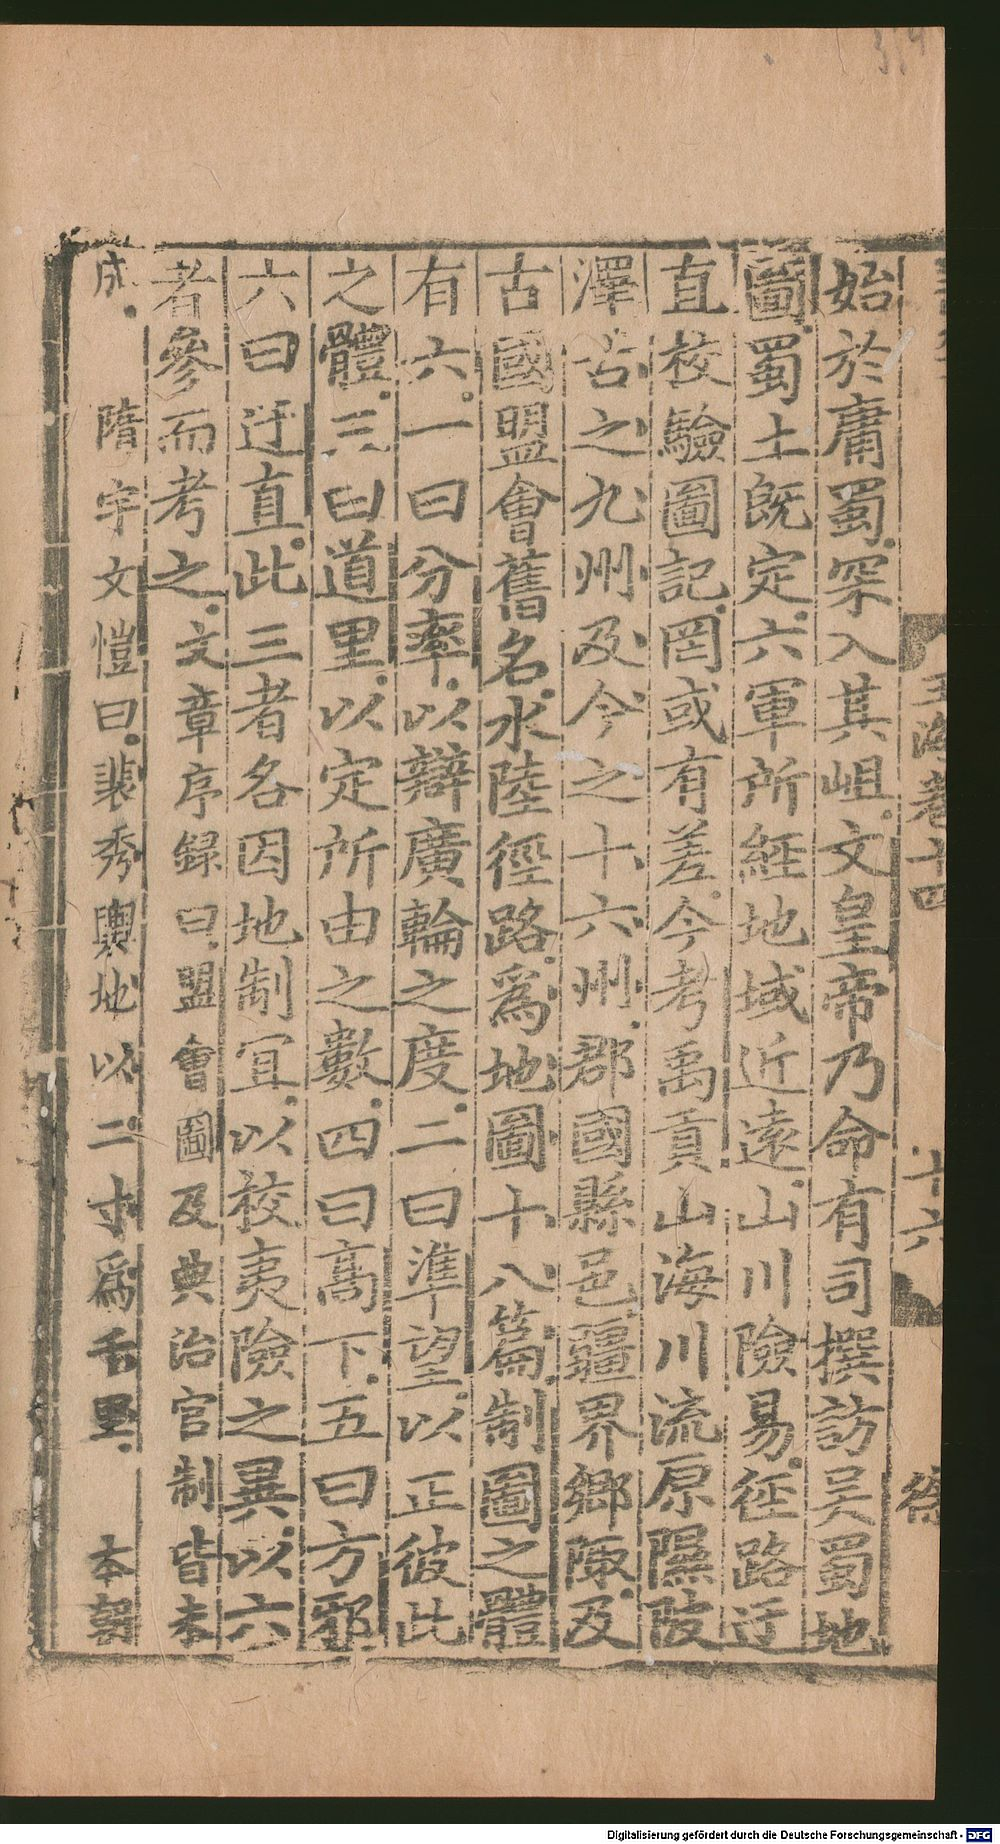 始於庸蜀罙入其岨文皇帝乃命有司撰訪吳蜀地
圖蜀土旣定六軍所經地域近遠山川險易徑路迂
直校驗圖記罔或有差今考禹貢山海川流原隰陂
澤古之九州及今之十六州郡國縣邑疆界鄉陬及
古國盟會舊名水陸徑路爲地圖十八篇制圖之體
有六一曰分率以辯廣輪之度二曰準望以正彼此
之體三曰道里以定所由之數四曰高下五曰方邪
六曰迂直此三者各因地制宜以校夷險之異以六
者參而考之文章序録曰盟會圖及典治官制皆未
成 隋宇文愷曰裴秀輿地以二寸爲千里 本朝
玉海卷十四 十六 徐
Digitalisierung gefördert durch die Deutsche Forschungsgemeinschaft - DFG